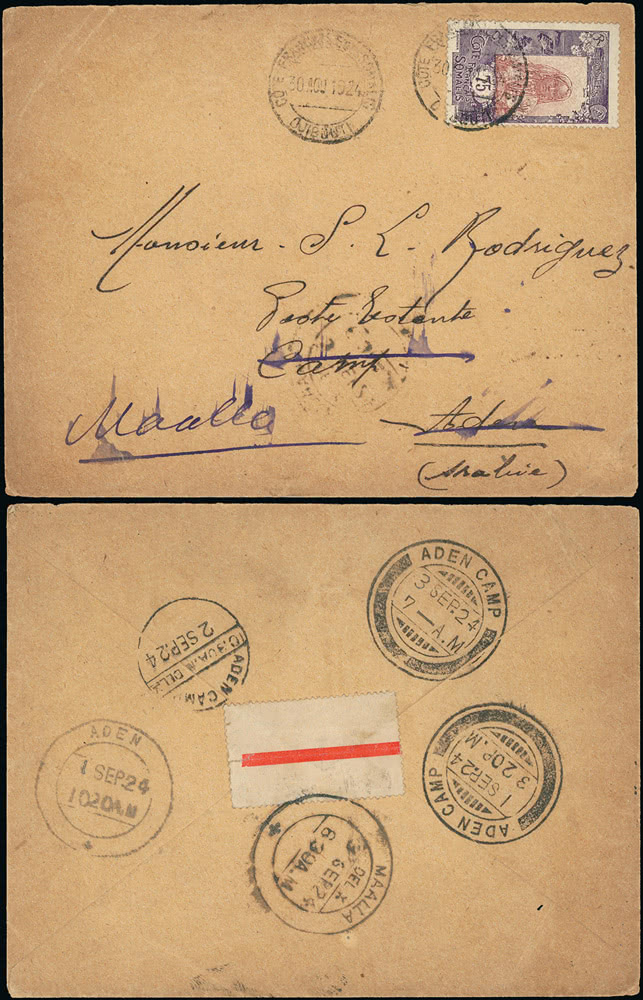 CÔTE FRANÇAISE DES SOMALIS
30 AOU 1924
DJIBOUTI
CÔTE FRANÇAISE
SOMALIS
75
Monsieur. S. L. Rodriguez
Poste Restante
Camp
Maalla
Aden
(Arabie)
ADEN CAMP
3 SEP.24
7-A.M
10.30A.M
2 SEP.24
ADEN CAMP DEL.
ADEN
1 SEP.24
10 20A.M
ADEN CAMP
1 SEP.24
3 20P.M
MAALLA
DEL
3 SEP.24
8 30A.M